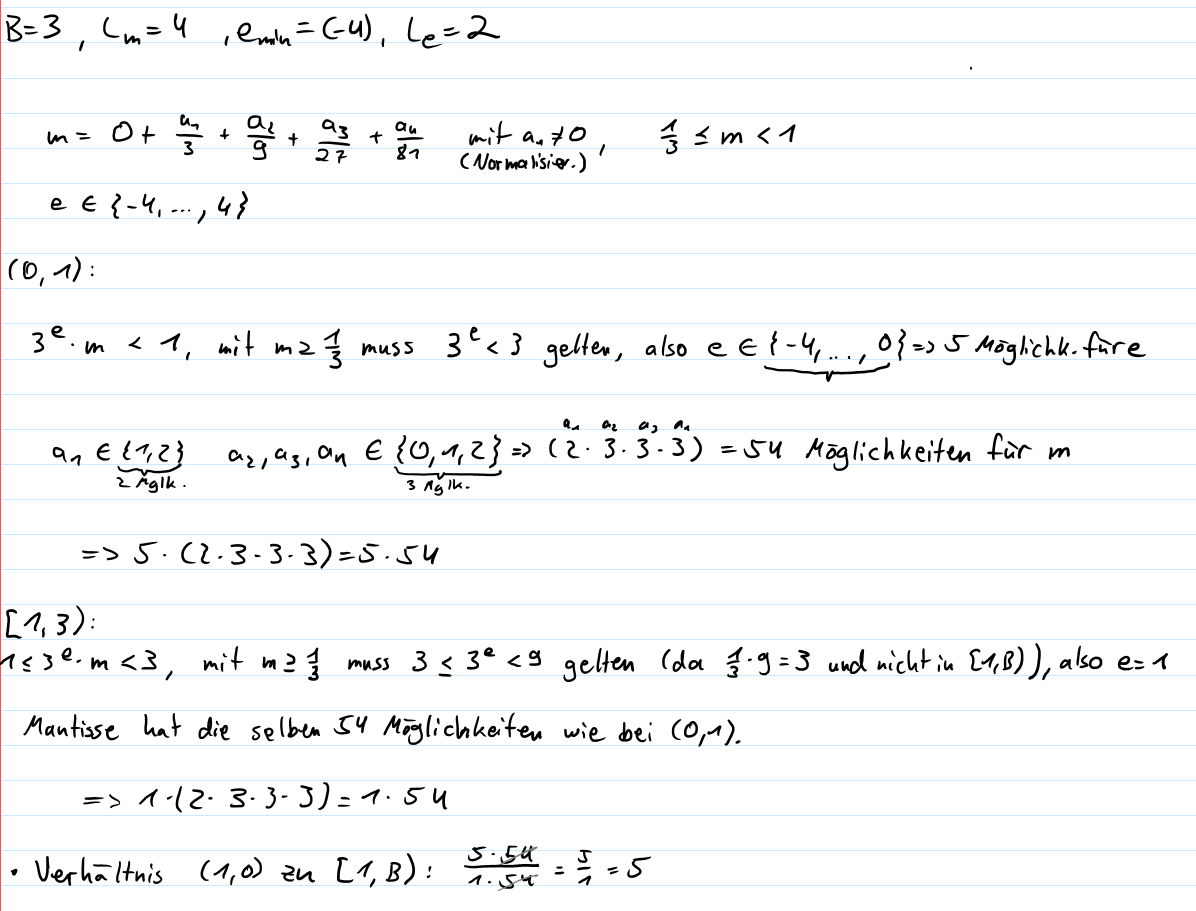 B=3 , Lm = 4 , emin = (-4), Le = 2
m = 0 + a1/3 + a2/9 + a3/27 + a4/81 mit a1 ≠ 0 , 1/3 ≤ m < 1
(Normalisier.)
e ∈ {-4, ..., 4}
(0, 1):
3^e · m < 1, mit m ≥ 1/3 muss 3^e < 3 gelten, also e ∈ {-4, ..., 0} => 5 Möglichk. für e
a1 a2 a3 a4
a1 ∈ {1,2} a2, a3, a4 ∈ {0, 1, 2} => (2 · 3 · 3 · 3) = 54 Möglichkeiten für m
2 Mglk. 3 Mglk.
=> 5 · (2 · 3 · 3 · 3) = 5 · 54
[1, 3):
1 ≤ 3^e · m < 3, mit m ≥ 1/3 muss 3 ≤ 3^e < 9 gelten (da 1/3 · 9 = 3 und nicht in [1, B)), also e = 1
Mantisse hat die selben 54 Möglichkeiten wie bei (0,1).
=> 1 · (2 · 3 · 3 · 3) = 1 · 54
• Verhältnis (1,0) zu [1, B): 5 · 54/1 · 54 = 5/1 = 5